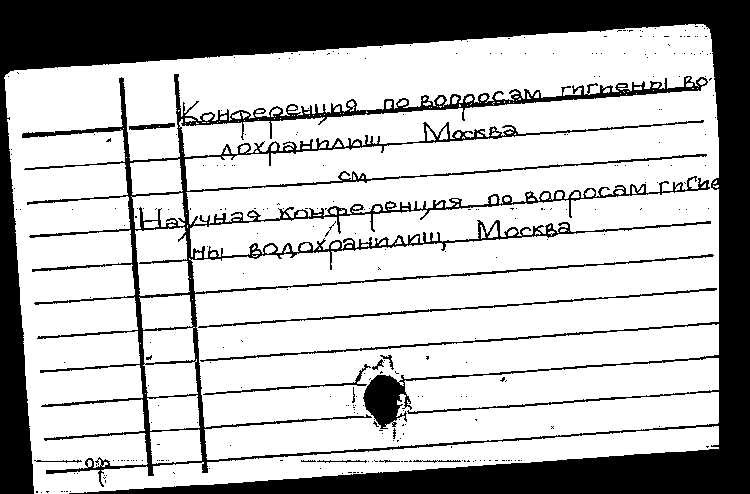 Конференция по вопросам гигиены во
дохранилищ, Москва
см
Научная конференция по вопросам гигие
ны водохранилищ, Москва